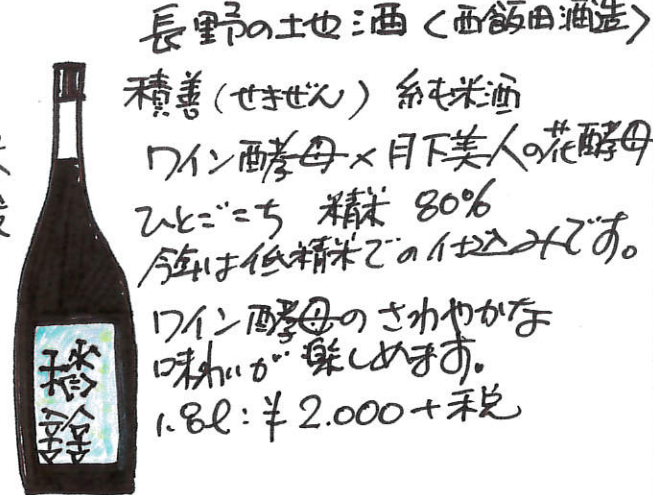 長野の地酒〈西飯田酒造〉
積善(せきぜん)純米酒
ワイン酵母×月下美人の花酵母
ひとごこち 精米 80%
今年は低精米での仕込みです。
ワイン酵母のさわやかな
味わいが楽しめます。
1.8ℓ:¥2.000+税
積善